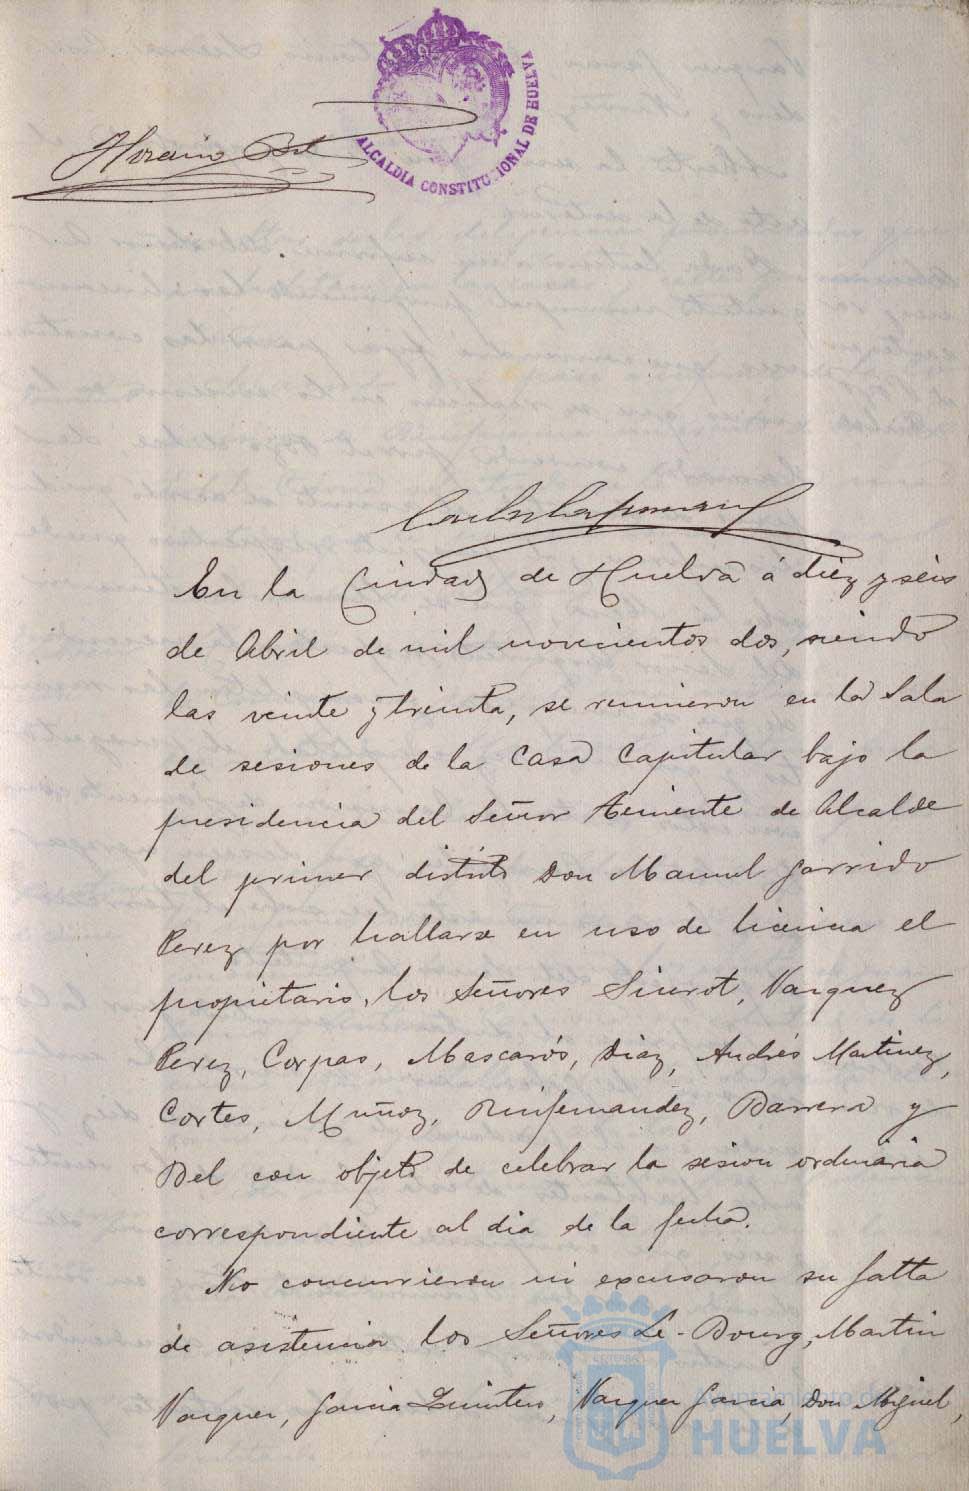 ALCALDIA CONSTITUCIONAL DE HUELVA
Horacio Bel
En la Ciudad de Huelva á diez y seis
de Abril de mil novecientos dos, siendo
las veinte y treinta, se reunieron en la Sala
de sesiones de la Casa Capitular bajo la
presidencia del Señor Teniente de Alcalde
del primer distrito Don Manuel Garrido
Perez por hallarse en uso de licencia el
propietario, los Señores Siurot, Vazquez
Perez, Corpas, Mascarós, Diaz, Andrés Martinez,
Cortes, Muñoz, Ruifernandez, Barrera y
Bel con objeto de celebrar la sesion ordinaria
correspondiente al dia de la fecha.
No concurrieron ni excusaron su falta
de asistencia los Señores Le-Bourg, Martin
Vazquez, Garcia Quintero, Vazquez Garcia, Don Miguel,
Ayuntamiento de
HUELVA